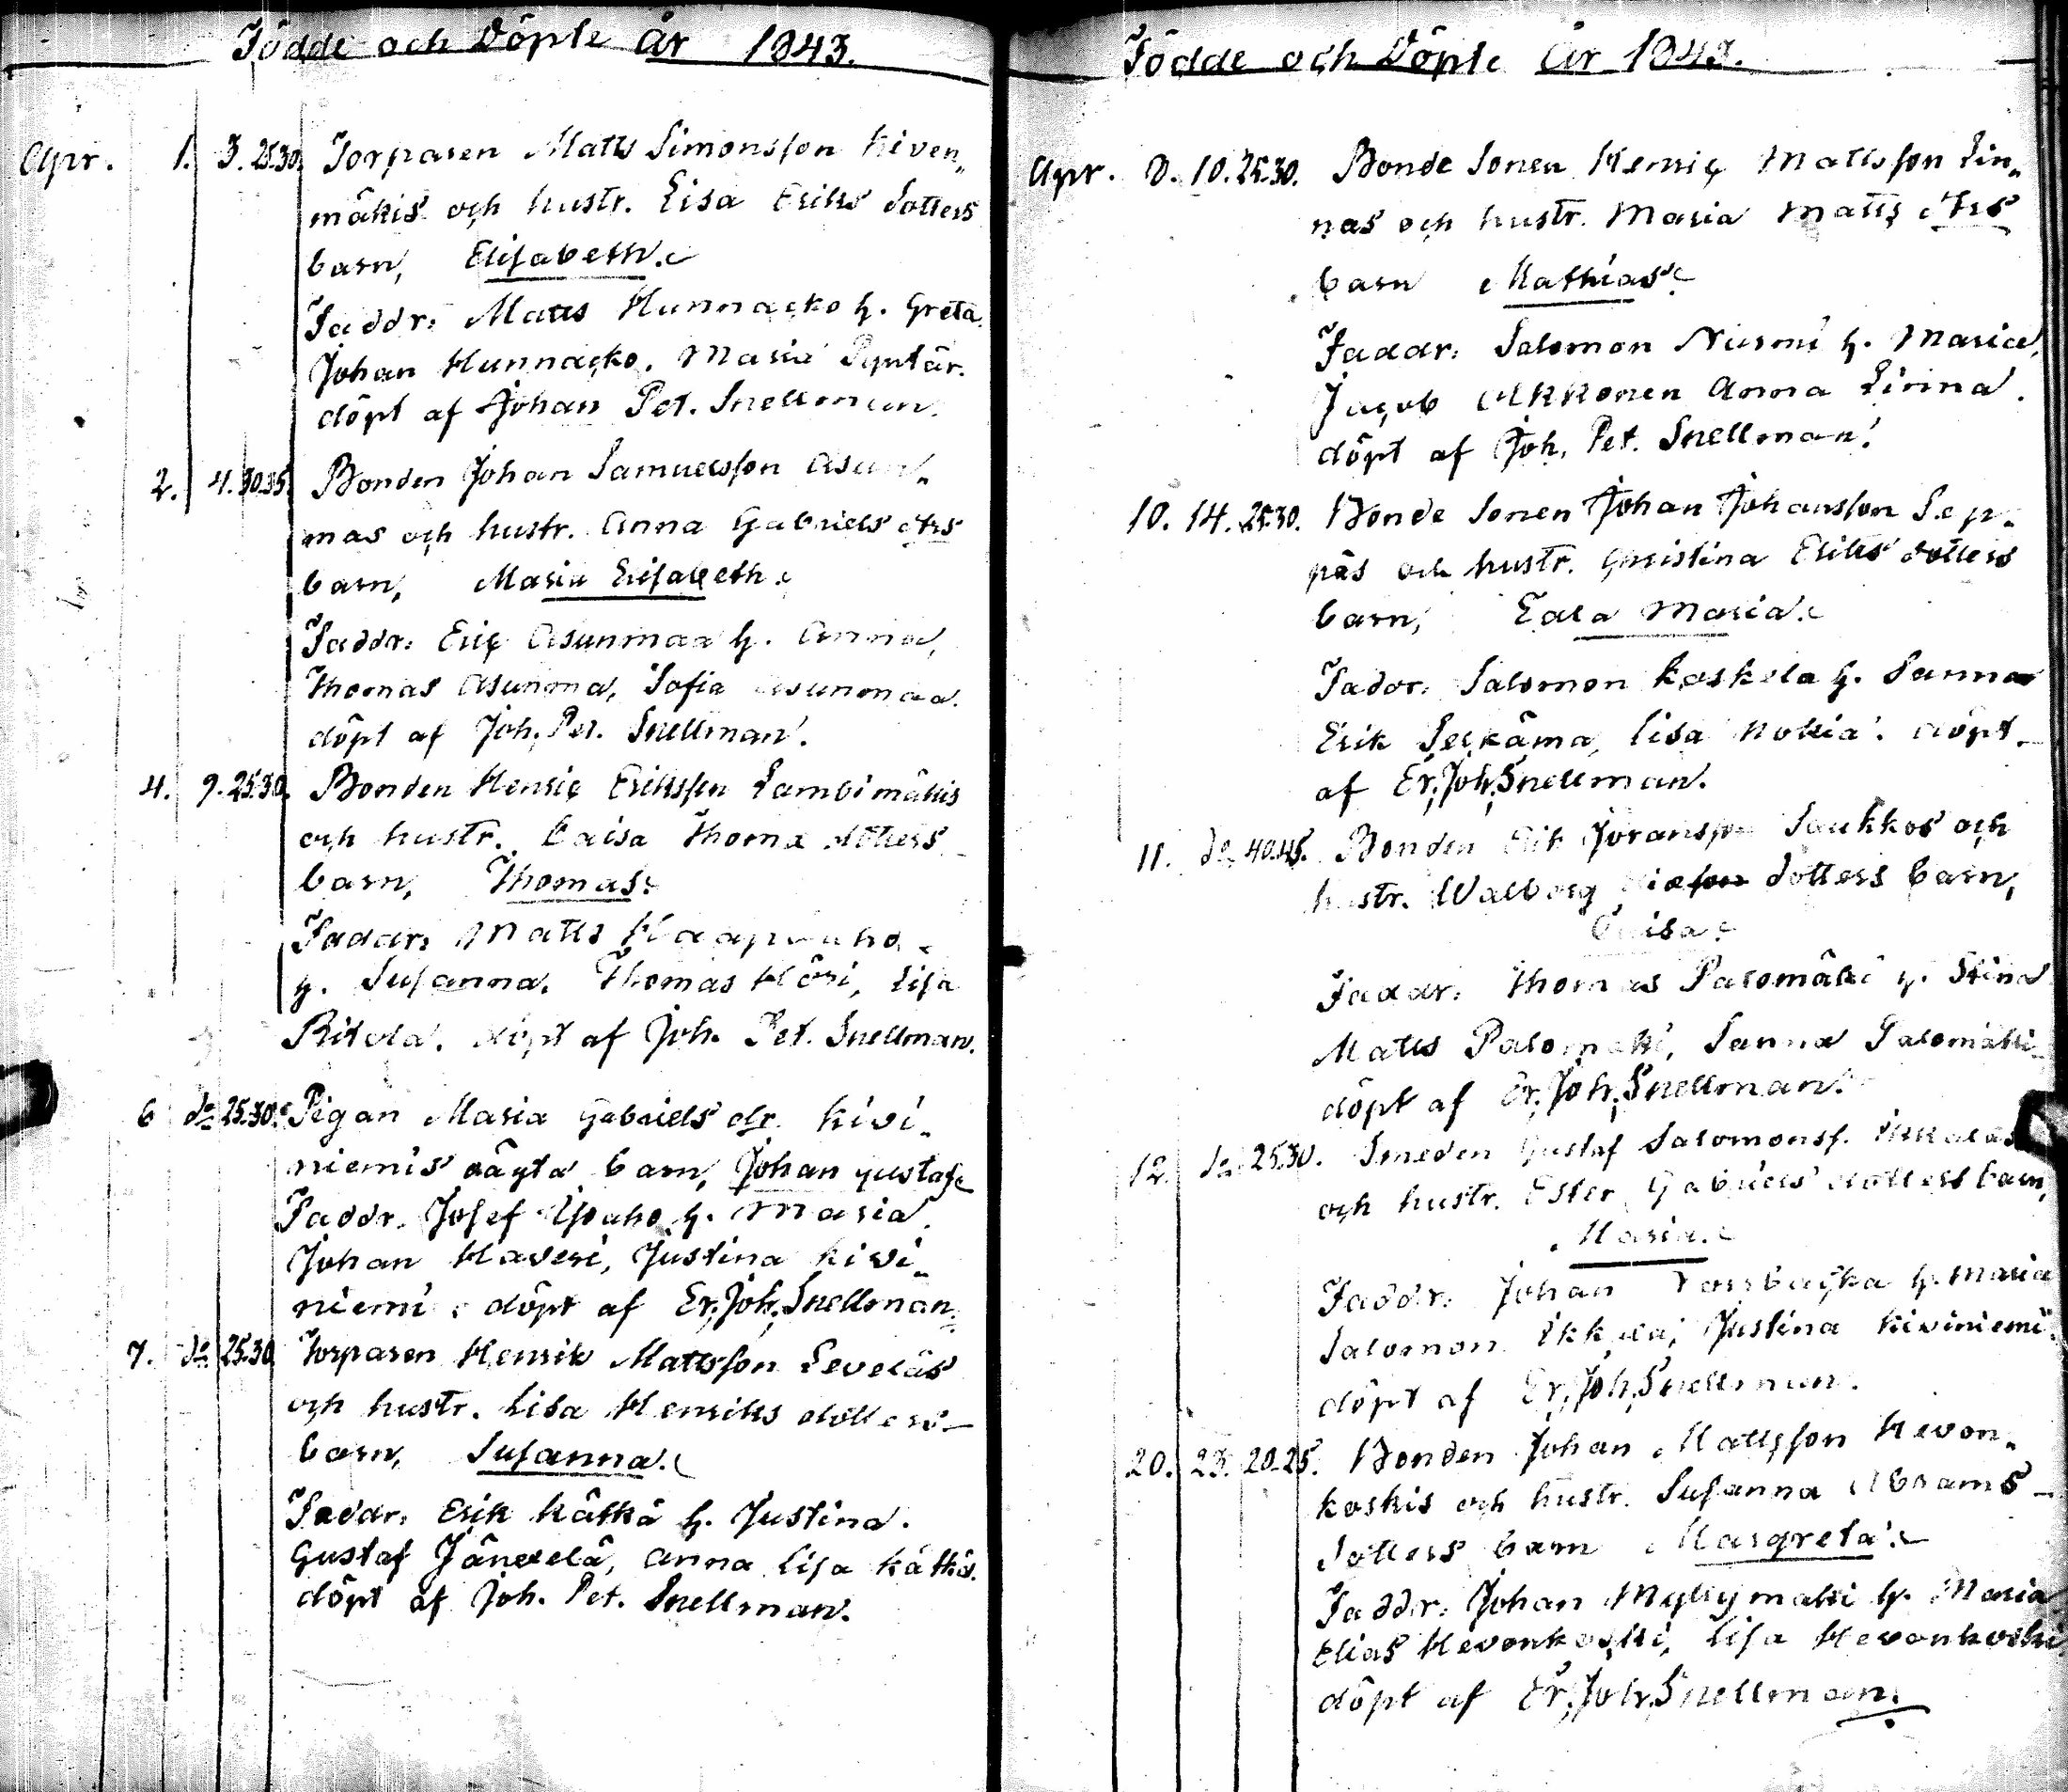 Födde och Döpte År 1843.
Apr. 1. 3. 25.30. Torparen Matts Simonsson Kiven„
mäkis och hustr. Lisa Eriks dotters
barn, Elisabeth.
Faddr: Matts Hunnacko h. Greta.
Johan Hunnacko. Maria Pyntär.
döpt af Johan Pet. Snellman.
2. 4. 30.35. Bonden Johan Samuelsson Asun„
mas och hustr. Anna Gabriels dtrs
barn, Maria Elisabeth.
Faddr: Eric Asunmaa h. Anna,
Thomas Asunma, Sofia Asunmaa.
döpt af Joh. Pet. Snellman.
4. 9. 25.30. Bonden Henric Eriksson Lambimäkis
och hustr. Caisa Thomæ dotters
barn, Thomas.
Faddr: Matts
h. Susanna. Thomas Höri, Lisa
Ritola. döpt af Joh. Pet. Snellman.
6 do 25.30. Pigan Maria Gabriels dr. Kivi„
niemis oägta barn, Johan Gustaf
Faddr. Josef h. Maria
Johan Haveri, Justina Kivi„
niemi döpt af Er. Joh. Snellman.
7. do 25.30 Torparen Henrik Mattsson Leveläs
och hustr. Lisa Henriks dotters
barn, Susanna.
Faddr: Erik Kätkä h. Justina.
Gustaf Jänexelä, Anna Lisa Kätkä.
döpt af Joh. Pet. Snellman.
Födde och Döpte År 1843.
Apr. 8. 10. 25.30. Bonde Sonen Henric Mattsson Lin„
nas och hustr. Maria Matts dtrs
barn Mathias
Faddr: Salomon Nurmi h. Maria,
Jacob Akkonen Anna Linna.
döpt af Joh. Pet. Snellman.
10. 14. 25.30. Bonde Sonen Johan Johansson Sep„
päs och hustr. Christina Eriks dotters
barn, Eala Maria.
Faddr: Salomon Koskela h. Sanna
Erik Leskäma, Lisa Nokia. döpt
af Er. Joh. Snellman.
11. do 40.45. Bonden Erik Joransson Saukkos och
hustr. Walborg dotters barn,
Caisa.
Faddr: Thomas Palomäki h. Stina
Matts Palomäki, Sanna Palomäki
döpt af Er. Joh. Snellman.
12. do 25.30. Smeden Gustaf Salomonss. Ikkaläs
och hustr. Ester Gabriels dotters barn,
Maria.
Faddr: Johan Forsbacka h. Maria
Salomon Ikkala, Justina Kiviniemi.
döpt af Er. Joh. Snellman.
20. 23. 20-25. Bonden Johan Mattsson Hevon„
koskis och hustr. Susanna Abrams
dotters barn Margreta.
Faddr: Johan Myllymäki h. Maria
Elias Hevonkoski, Lisa Hevonkoski
döpt af Er. Joh. Snellman.